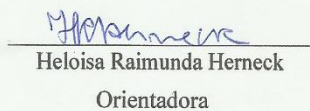 HHerneck
Heloisa Raimunda Herneck
Orientadora